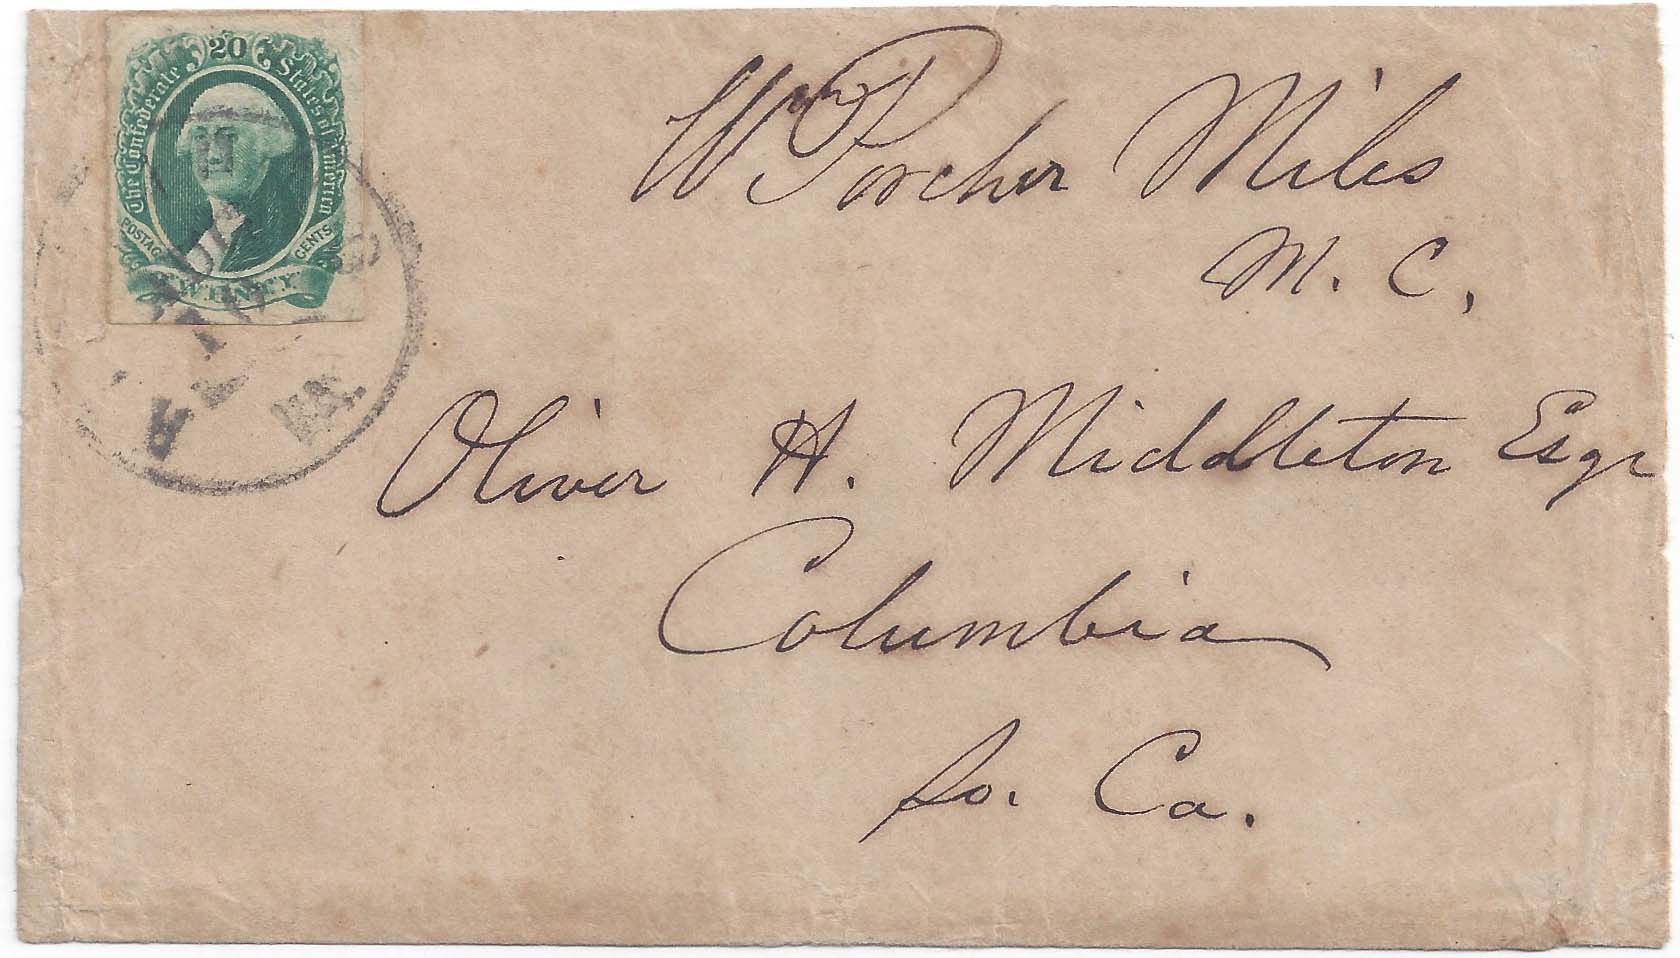 20
The Confederate States of America
POSTAGE CENTS
TWENTY
VA.
Wm Porcher Miles
M. C.
Oliver H. Middleton Esqr
Columbia
So. Ca.